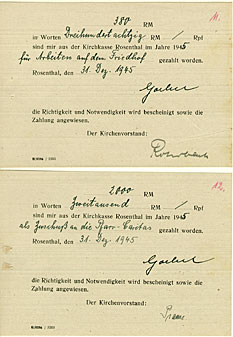 11.
380 RM / Rpf
in Worten Dreihundertachtzig
sind mir aus der Kirchkasse Rosenthal im Jahre 1945
für Arbeiten auf dem Friedhof gezahlt worden.
Rosenthal, den 31. Dez. 1945
die Richtigkeit und Notwendigkeit wird bescheinigt sowie die
Zahlung angewiesen.
Der Kirchenvorstand:
12.
2000 RM / Rpf
in Worten Zweitausend
sind mir aus der Kirchkasse Rosenthal im Jahre 1945
als Zuschuß an die Pfarr-Caritas gezahlt worden.
Rosenthal, den 31. Dez. 1945
die Richtigkeit und Notwendigkeit wird bescheinigt sowie die
Zahlung angewiesen.
Der Kirchenvorstand: